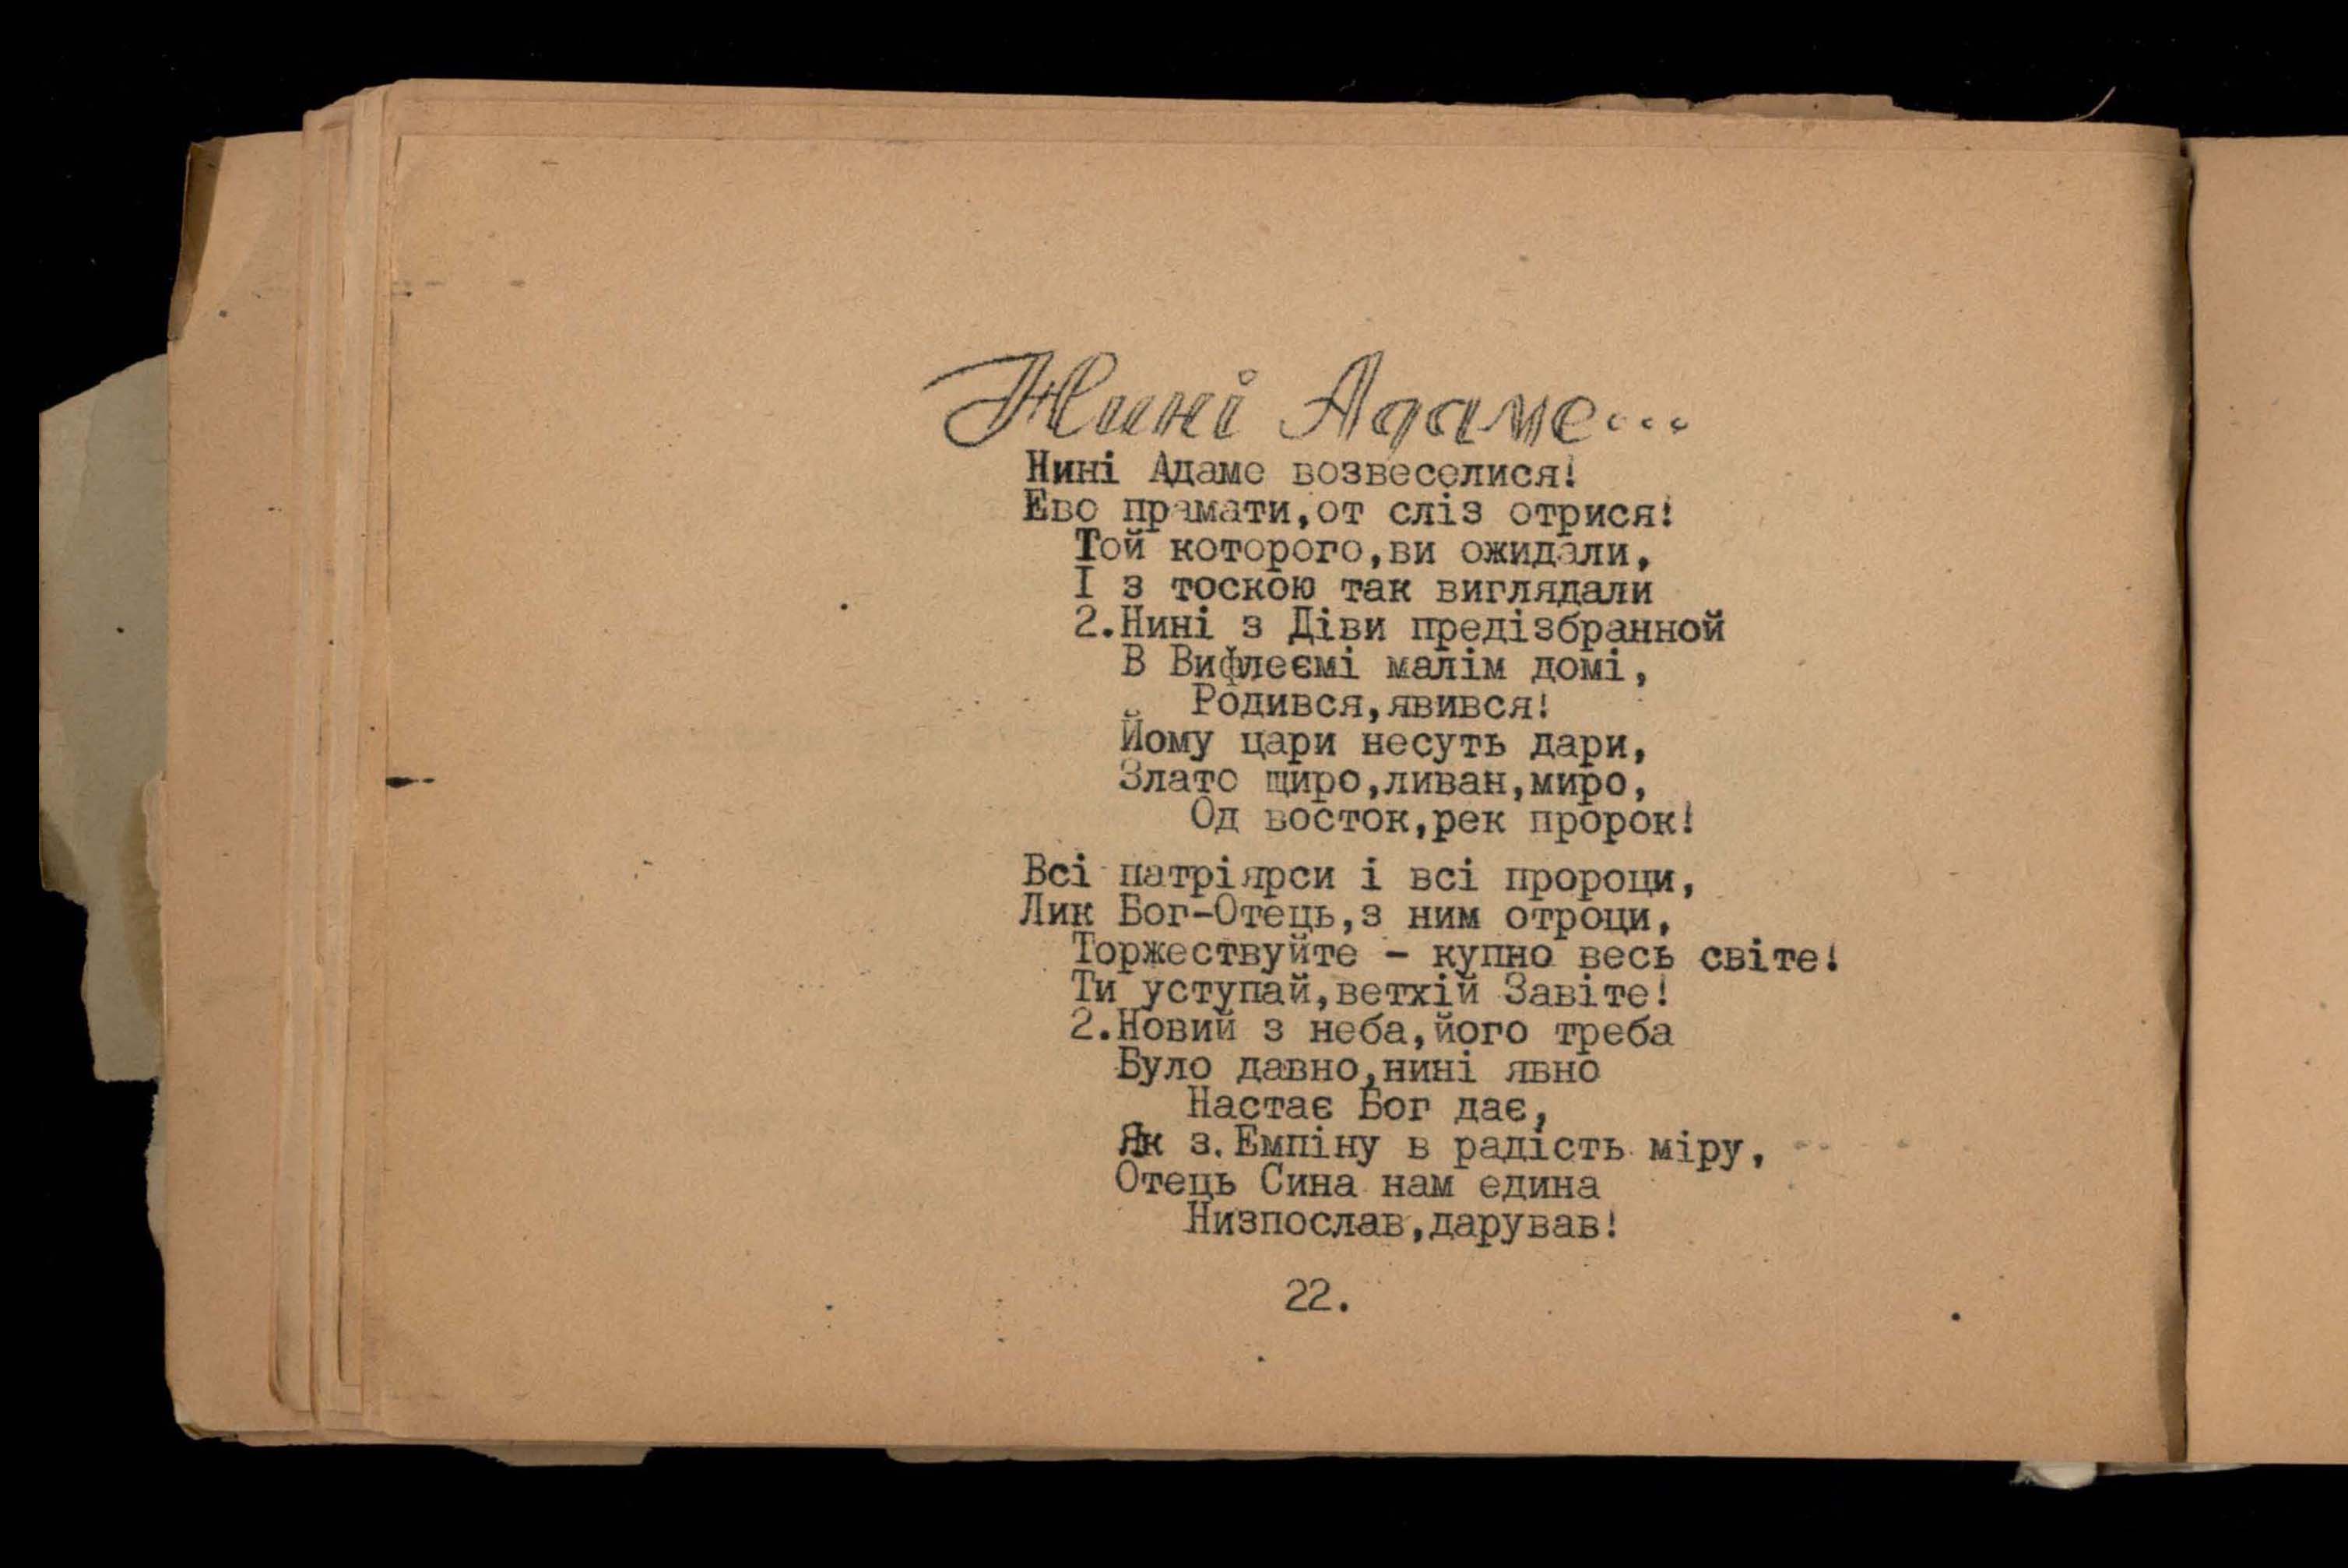 Нині Адаме...
Нині Адаме возвеселися!
Ево прамати,от сліз отрися!
Той которого,ви ожидали,
І з тоскою так виглядали
2.Нині з Діви предізбранной
В Вифлеємі малім домі,
Родився,явився!
Йому цари несуть дари,
Злато щиро,ливан,миро,
Од восток,рек пророк!
Всі патріярси і всі пророци,
Лик Бог-Отець,з ним отроци,
Торжествуйте - купно весь світе!
Ти уступай,ветхій Завіте!
2.Новий з неба,його треба
Було давно,нині явно
Настає Бог дає,
Як з.Емпіну в радість міру,
Отець Сина нам едина
Низпослав,дарував!
22.